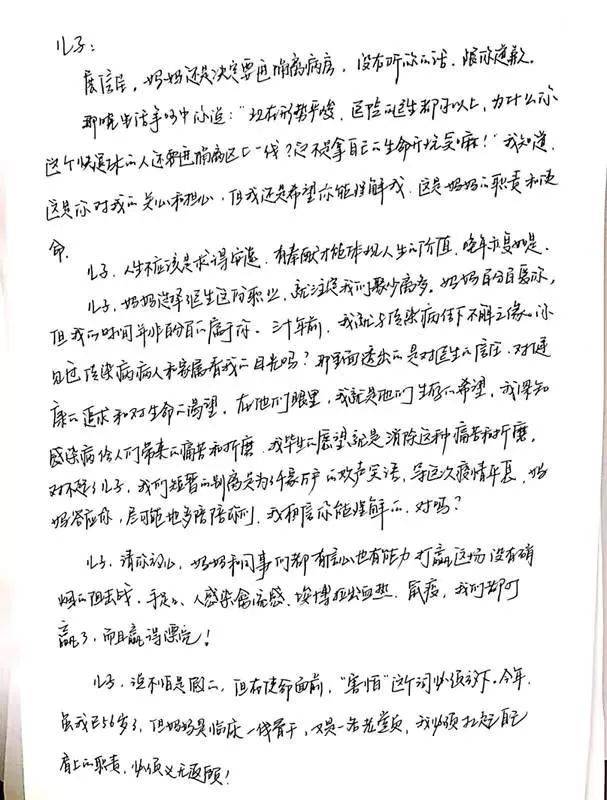 儿子：
展信佳，妈妈还是决定要进隔离病房，没有听你的话，跟你道歉。
那晚生活手呀中你说："现在形势严峻，医院的医生都可以上，为什么你
这个快退休的人还要进隔离区上一线？您不是拿自己的生命开玩笑嘛！"我知道，
这是你对我的关心和担心，但我还是希望你能理解我，这是妈妈的职责和使
命。
儿子，人生不应该是求得安逸，有奉献才能体现人生的价值，晚年亦复如是。
儿子，妈妈选择医生这份职业，就注定我们聚少离多。妈妈百分百爱你，
但我的时间并非百分百属于你。三十年前，我就与传染病结下不解之缘。你
见过传染病病人和家属看我的目光吗？那里面透出的是对医生的信任，对健
康的追求和对生命的渴望，在他们眼里，我就是他们生存的希望，我深知
感染病给人们带来的痛苦和折磨，我毕生的愿望就是消除这种痛苦和折磨，
对不起了儿子，我们短暂的别离是为千家万户的欢声笑语，等这次疫情平复，妈
妈答应你，尽可能地多陪陪你们，我相信你能理解的，对吗？
儿子，请你放心，妈妈和同事们都有信心也有能力打赢这场没有硝
烟的阻击战。手足口、人感染禽流感、埃博拉出血热、鼠疫，我们都打
赢了，而且赢得漂亮！
儿子，说不怕是假的，但在使命面前，"害怕"这个词必须放下。今年
虽我已56岁了，但妈妈是临床一线骨干，又是一名老党员，我必须扛起自己
肩上的职责，必须义无返顾！